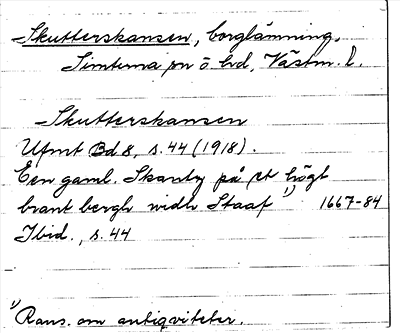 Skutterskansen, borglämning.
Simtuna sn ö. hd, Västm. l.
Skutterskansen
Ufmt Bd 8, s. 44 (1918).
Een gaml. Skantz på et högt
brant bergh widh Staaf 1) 1667-84
Ibid., s. 44
1) Rans. om antiqviteter.